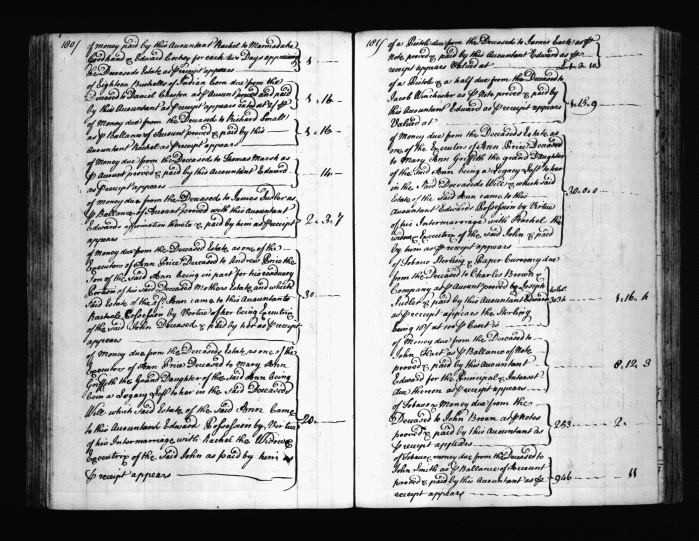 180/
of money paid by this Accountant Rachel to Marmaduke
Goodhand & Edward Corkey for each two Days appraising
the Deceaseds Estate as p receipt appears
of Eighteen Bushells of Indian Corn due from the
Deceased to Daniel Cheston as p Account proved and paid
by this Accountant as p receipt appears
1 „ 16 —
of Money due from the Deceased to Richard Small
as p Ballance of Account proved & paid by this
Accountant Rachel as p receipt appears
1 „ 16 —
of Money due from the Deceased to Thomas Marsh as
p Account proved & paid by this Accountant Edward
as p receipt appears
14 —
of money due from the Deceased to James Sudler as
p Ballance of Account proved with this Accountant
Edwards affirmation thereto & paid by him as p receipt
appears
2 „ 3 „ 7
of money due from the Deceased Estate as one of the
Executors of Ann Price Deceased to Andrew Price the
Son of the said Ann being in part for his
Portion of his said Deceased Mothers Estate and which
said Estate of the sd Ann came to this Accountants
Rachels Possession by Vertue of her being Executrix
of the said John Deceased & paid by her as p receipt
appears
30 —
of Money due from the Deceaseds Estate as one of the
Executors of Ann Price Deceased to Mary Ann
Griffith the Grand Daughter of the said Ann being
been a Legacy Left to her in the said Deceased
Will which said Estate of the said Ann came
to this Accountant Edward Possession by Vertue
of his Intermarriage with Rachel the Widow &
Executrix of the said John as paid by him
p receipt appears
20 —
181/
of a Pistole due from the Deceased to James Earle as p
Note proved & paid by this Accountant Edward as p
receipt appears Valued at
of a Pistole & a half due from the Deceased to
Jacob Winchester as p Note proved & paid by
this Accountant Edward as p receipt appears
Valued at
1 „ 15 „ 9
of Money due from the Deceaseds Estate as
one of the Executors of Ann Price Deceased
to Mary Ann Griffith the grand Daughter
of the said Ann being a Legacy Left to her
in the said Deceaseds Will & which said
Estate of the said Ann came to this
Accountant Edwards Possession by Vertue
of his Intermarriage with Rachel the
widow & Executrix of the said John & paid
by him as p receipt appears
30 „ 0 „ 0
of Tobacco Sterling & Paper Currency due
from the Deceased to Charles Brown &
Company as p Account proved by Joseph
Sudler & paid by this Accountant Edward
as p receipt appears the Sterling
being at 100 p Cent is
1 „ 16 „ 4
of Money due from the Deceased to
John Hart as p Ballance of Note
proved & paid by this Accountant
Edward for the Principal & Interest
due thereon as p receipt appears
8 „ 12 „ 3
of Tobacco & Money due from the
Deceased to John Brown as p Notes
proved & paid by this Accountant as
p receipt appears
253 — 2 „
of Tobacco & money due from the Deceased to
John Smith as p Ballance of Account
proved & paid by this Accountant as p
receipt appears
946 — 11